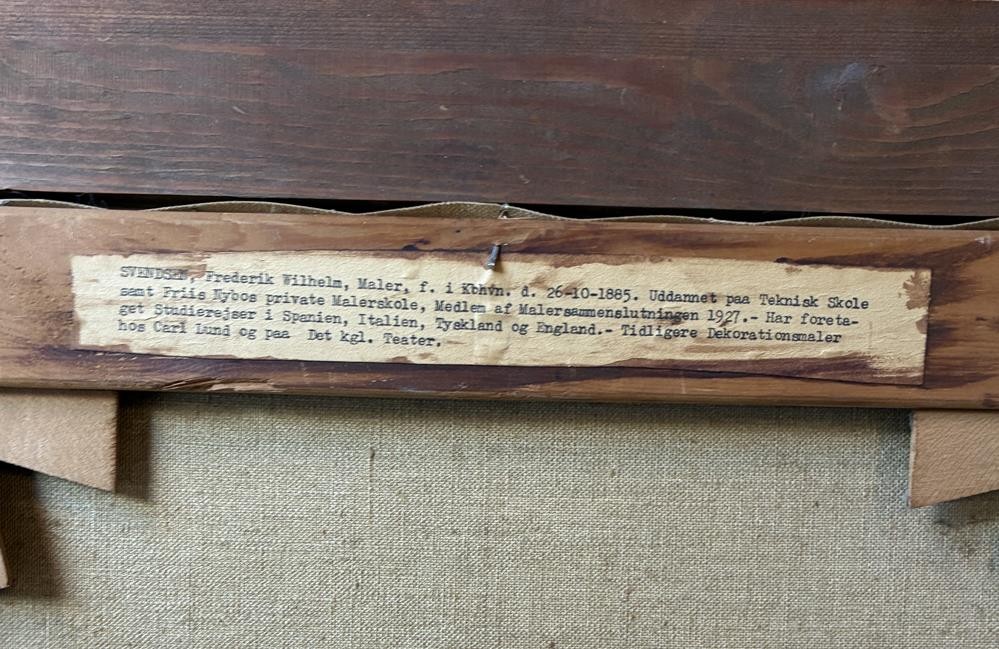 SVENDSEN, Frederik Wilhelm, Maler, f. i Kbhvn. d. 26-10-1885. Uddannet paa Teknisk Skole
samt Friis Nybos private Malerskole, Medlem af Malersammenslutningen 1927.- Har foreta-
get Studierejser i Spanien, Italien, Tyskland og England.- Tidligere Dekorationsmaler
hos Carl Lund og paa Det kgl. Teater.